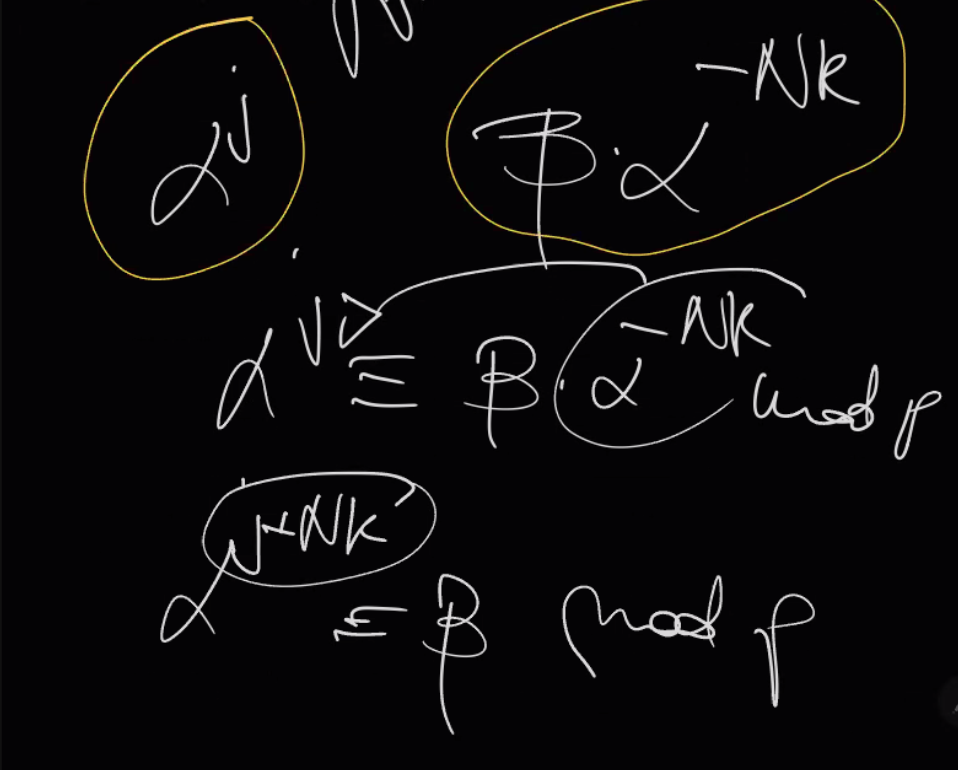 α^j β·α^{-Nk}
α^j ≡ β·α^{-Nk} mod p
α^{j+Nk} ≡ β mod p